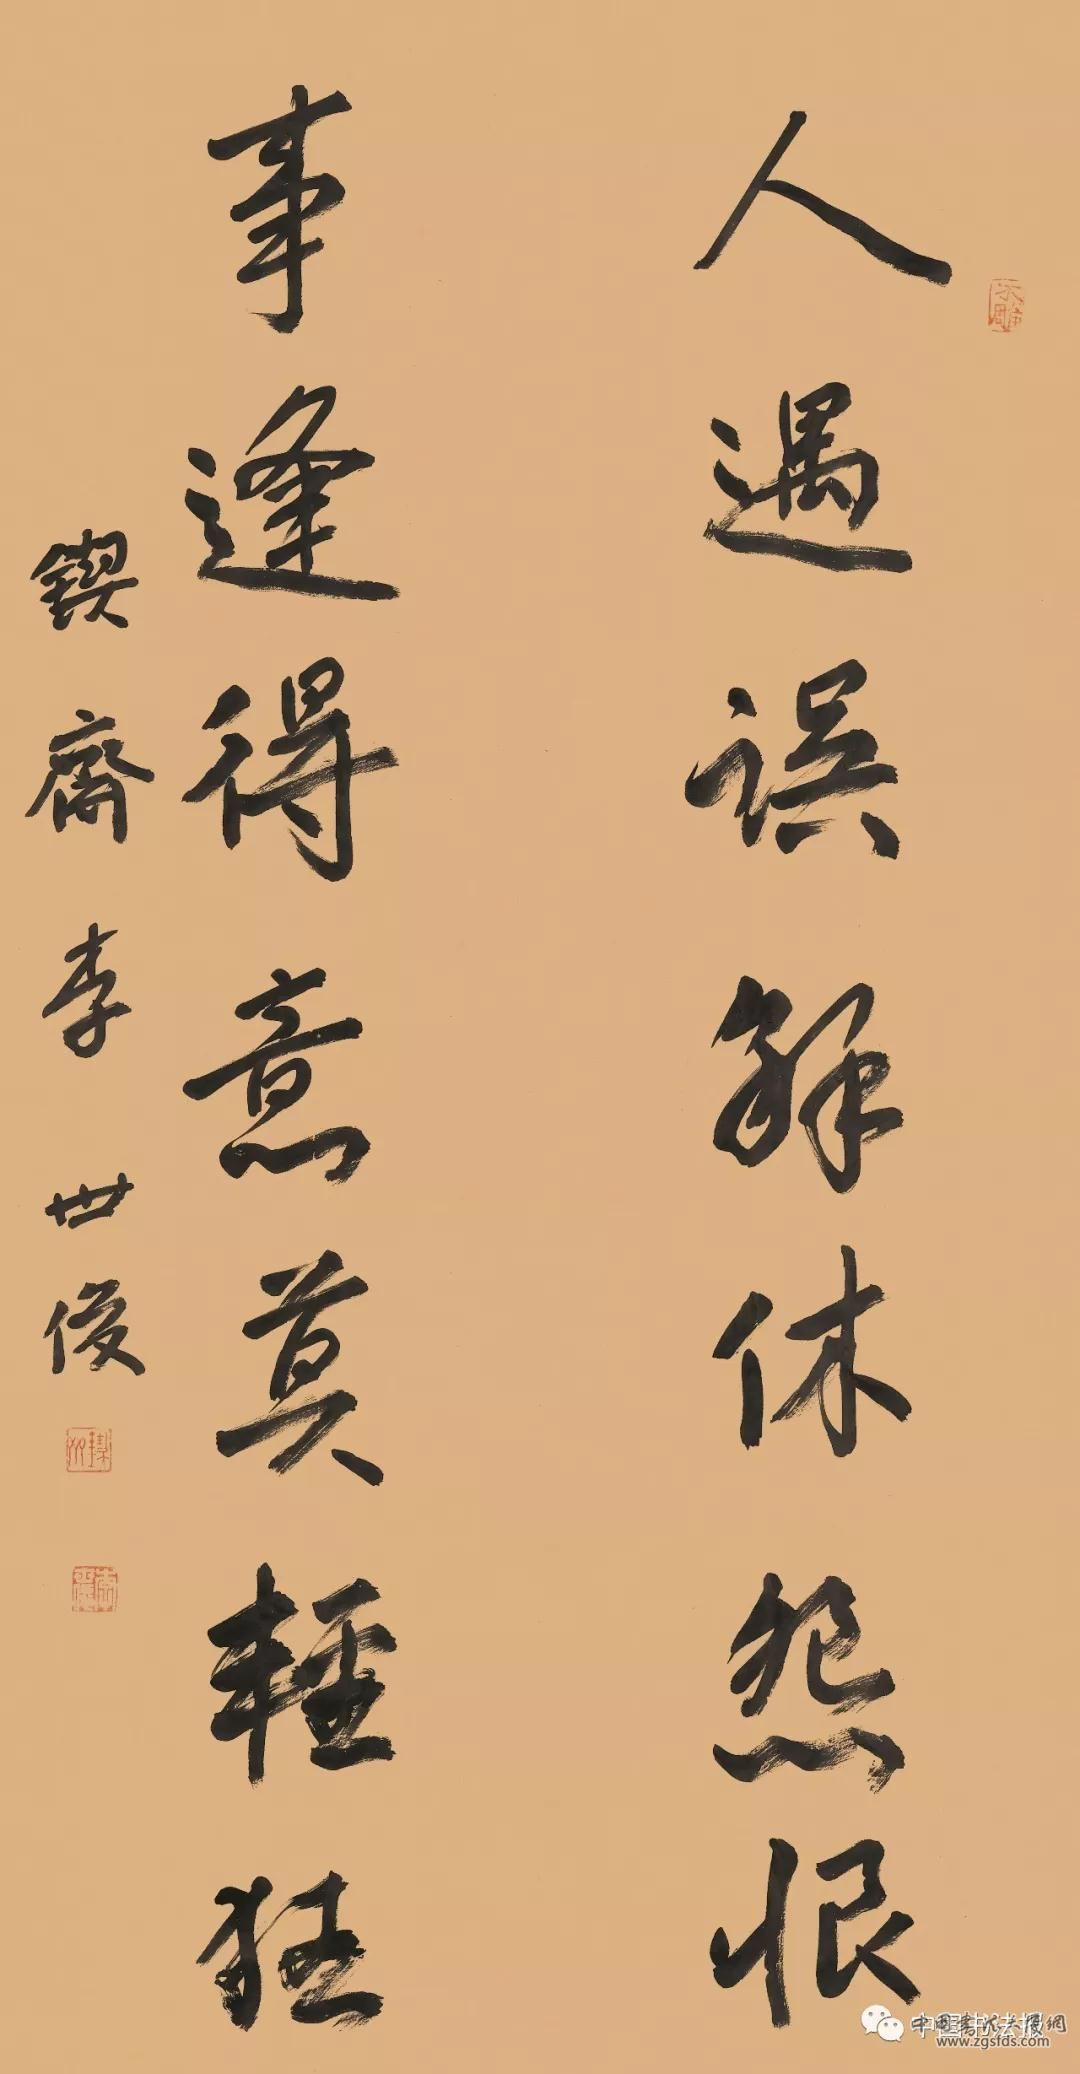 人遇误解休怨恨
事逢得意莫輕狂
鍥齋李世俊
中国书法报
www.zgsfds.com